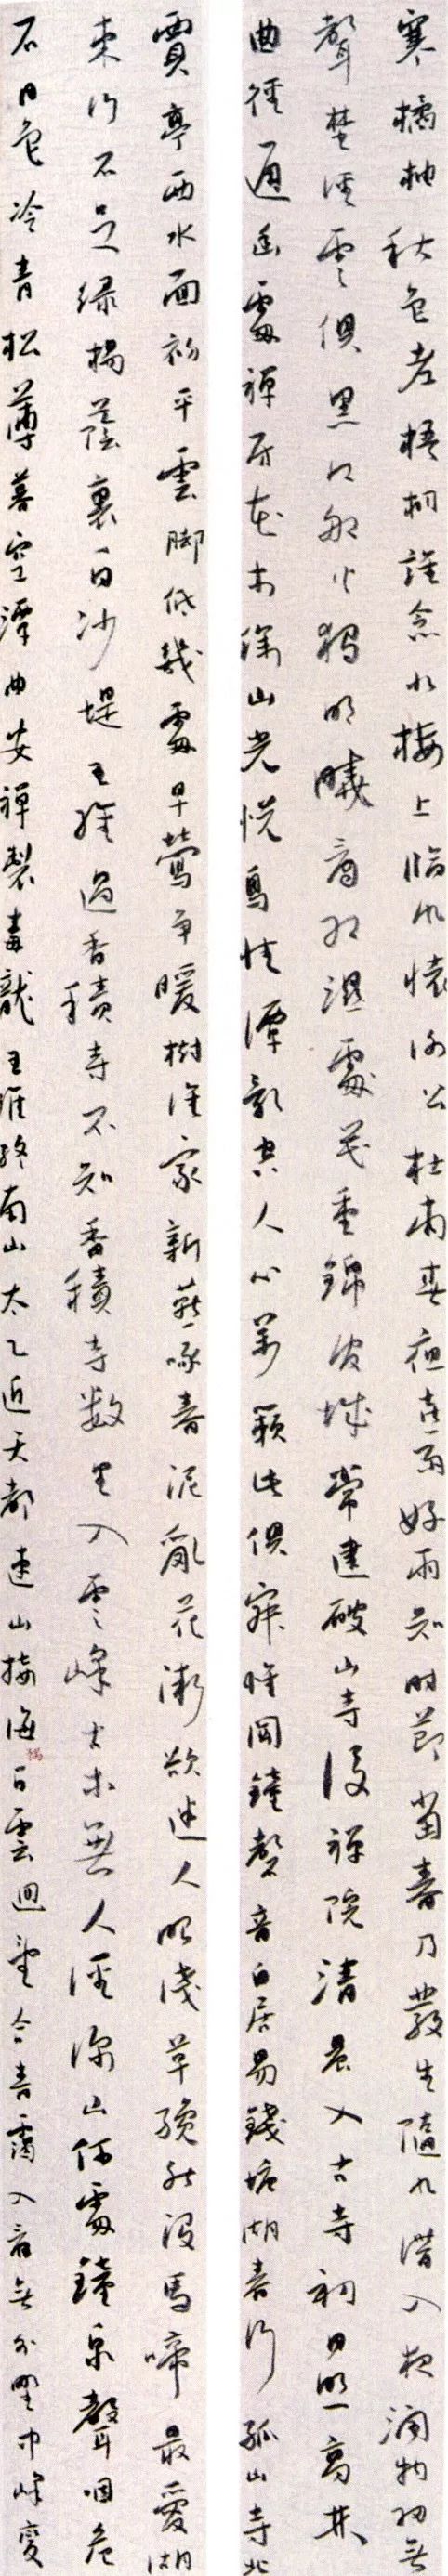 寒橘柚秋色老梧桐誰念北樓上臨風懷謝公杜甫春夜喜雨好雨知時節當春乃發生隨風潛入夜潤物細無
聲野徑雲俱黑江船火獨明曉看紅濕處花重錦官城常建破山寺後禪院清晨入古寺初日照高林
曲徑通幽處禪房花木深山光悅鳥性潭影空人心萬籟此俱寂惟聞鐘磬音白居易錢塘湖春行孤山寺北
賈亭西水面初平雲腳低幾處早鶯爭暖樹誰家新燕啄春泥亂花漸欲迷人眼淺草纔能沒馬啼最愛湖
東行不足綠楊蔭裏白沙堤王維過香積寺不知香積寺數里入雲峰古木無人徑深山何處鐘泉聲咽危
石日色冷青松薄暮空潭曲安禪製毒龍王維終南山太乙近天都連山接海白雲迴望合青靄入看無分野中峰變